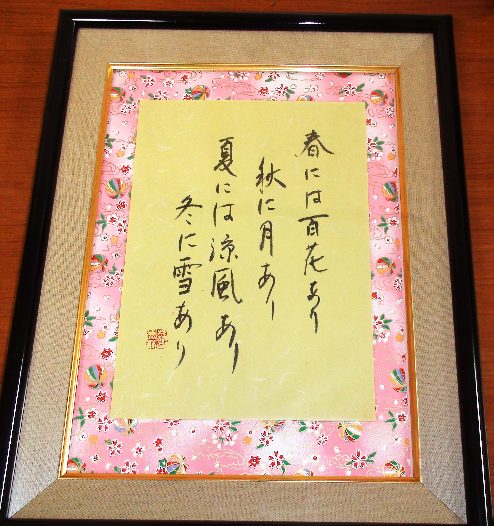 春には百花あり
秋に月あり
夏には涼風あり
冬に雪あり